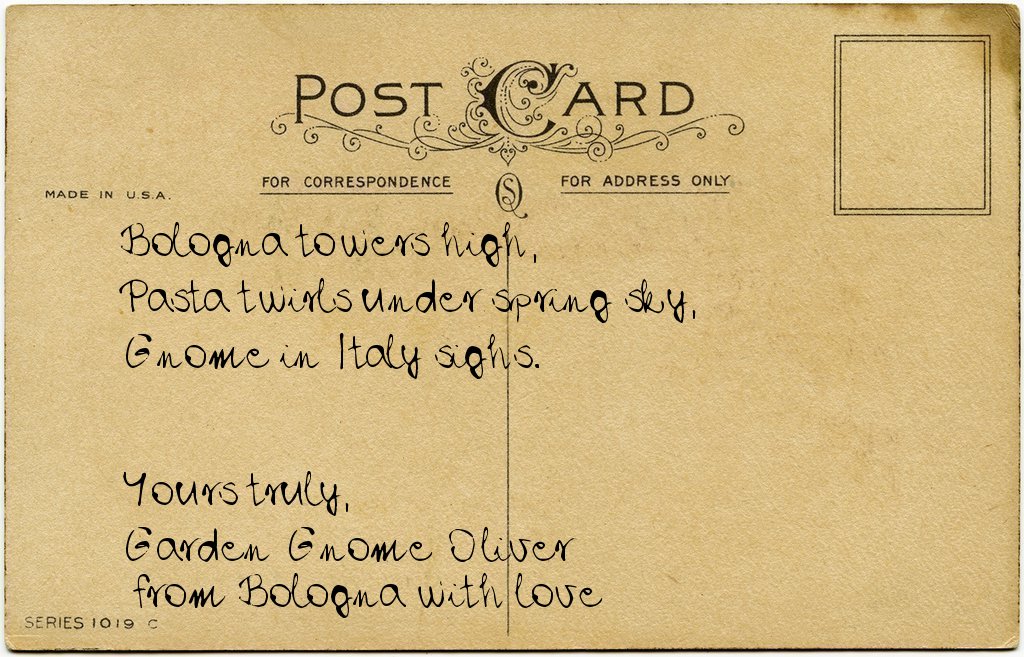 POST CARD
FOR CORRESPONDENCE
FOR ADDRESS ONLY
MADE IN U.S.A.
Bologna towers high,
Pasta twirls under spring sky,
Gnome in Italy sighs.
Yours truly,
Garden Gnome Oliver
from Bologna with love
SERIES 1019 C